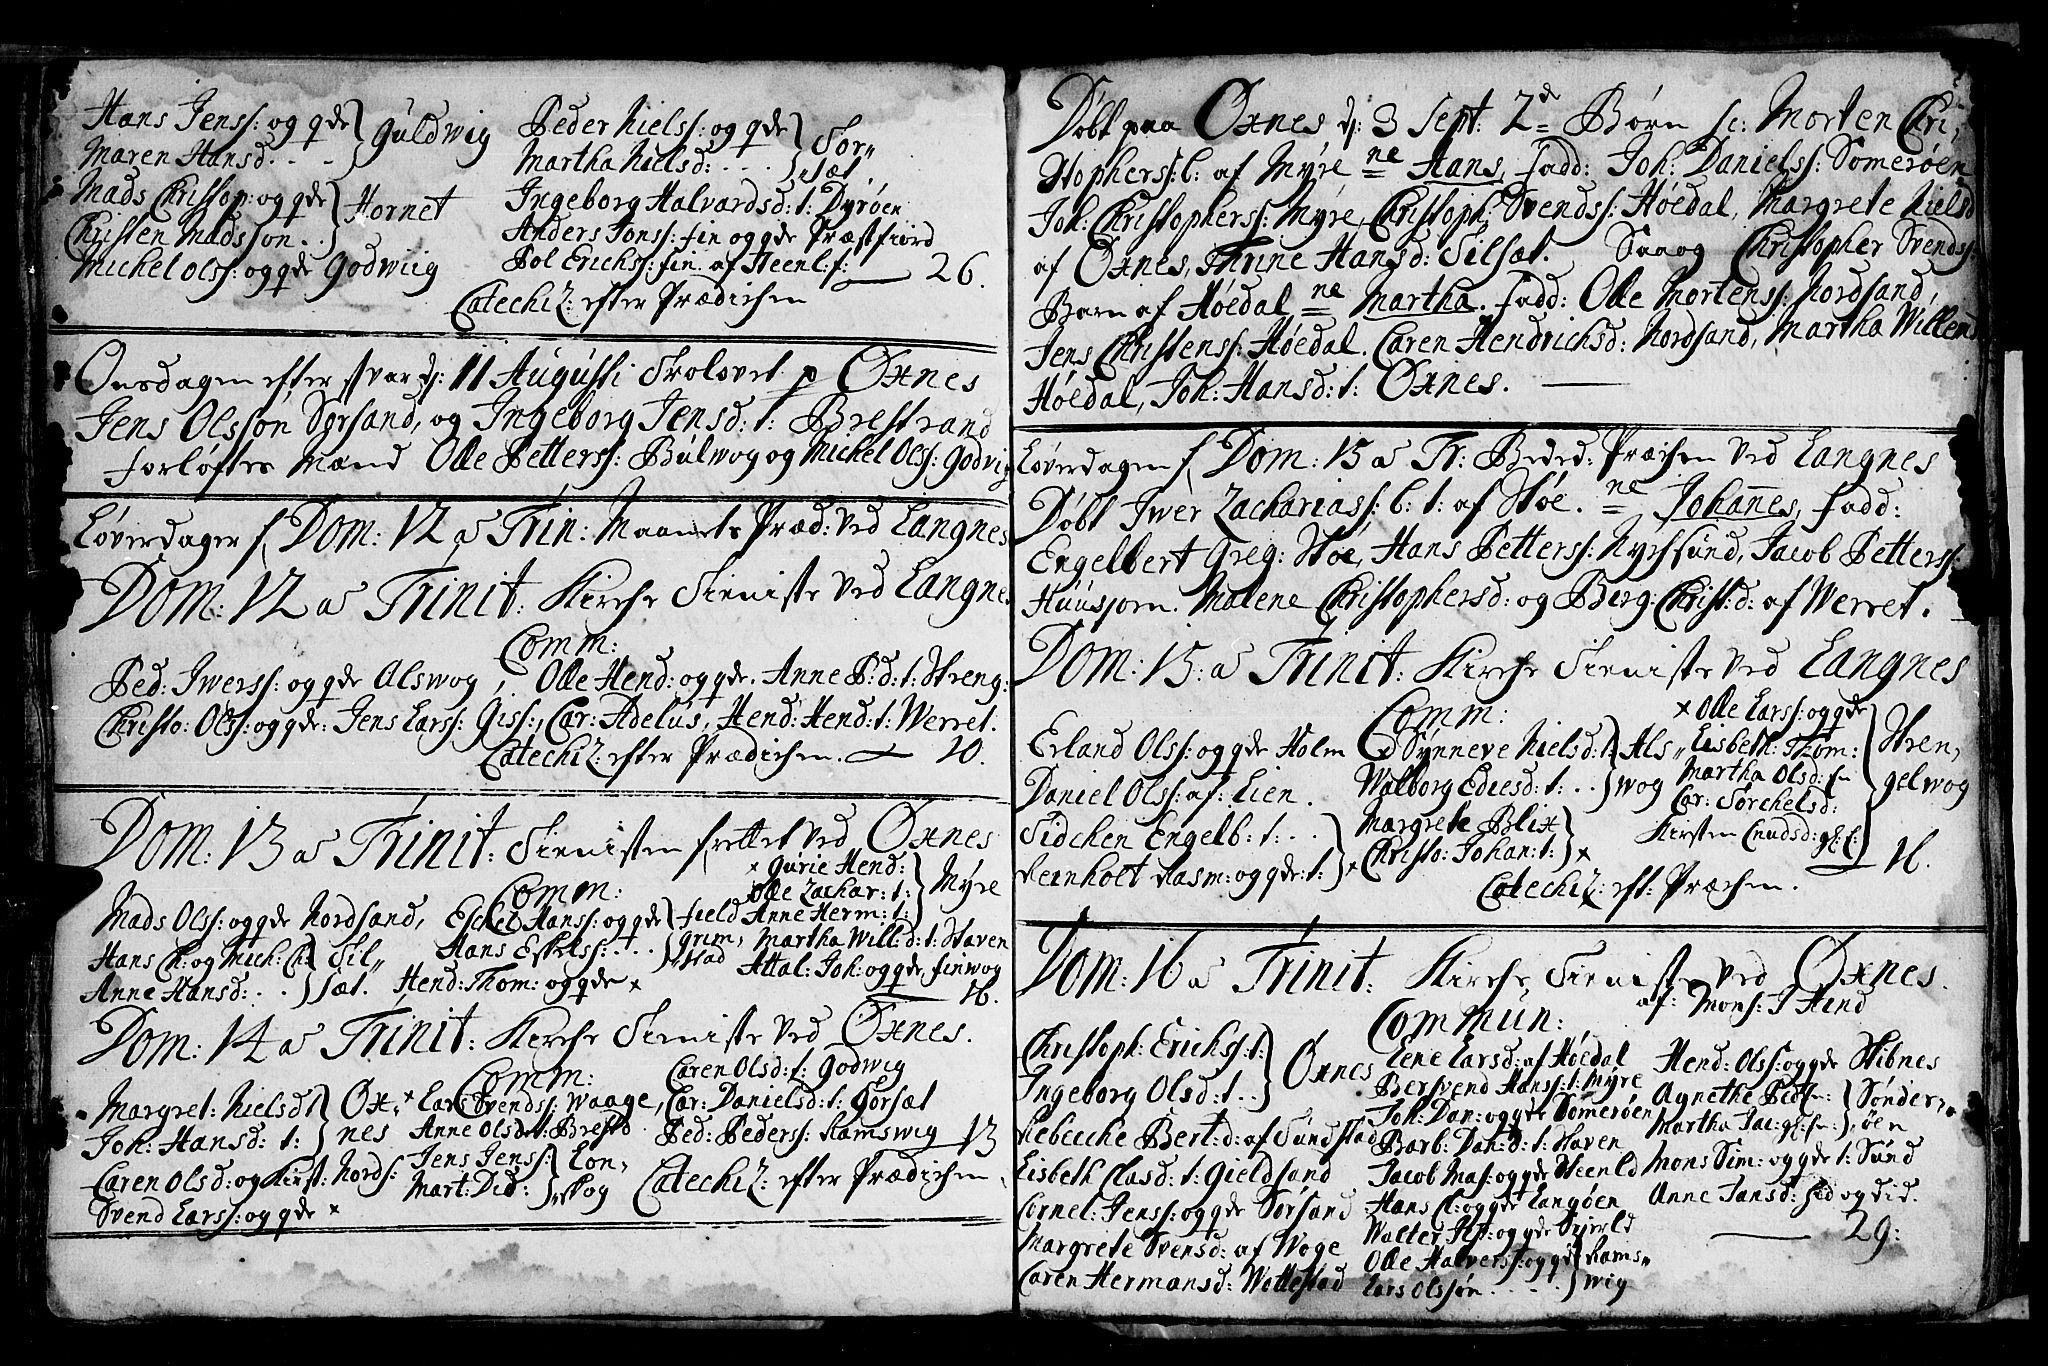 Hans Jenss: og qde } Guldwig
Maren Hansd: . . }
Mads Christop: og qde } Hornet
Christen Madsson . . }
Michel Olss: og qde Godwiig
Peder Nielss: og qde } Sor„
Martha Nielsd: . . . } sæt
Ingeborg Halvardsd: t: Dyrøen
Anders Jonss: fin og qde Præstfiord
Pol Erichss: fin. af Steenl: f: — 26.
Catechiz: efter Prædichen
Onsdagen efter d: 11 Augusti Trolovet p Øxnes
Jens Olsson Sørsand, og Ingeborg Jensd: t: Brestrand
forløftes Mænd Olle Petterss: Bulwog og Michel Olss: Godvig
Løverdagen f Dom: 12 a Trin: Maanets Præd: ved Langnes
Dom: 12 a Trinit: Kirche Tieniste ved Langnes
Comm:
Ped: Iwerss: og qde Alswog, Olle Hend: og qde. Anne P:d: t: Streng:
Christo: Olss: og qde: Jens Larss: Giss:, Car: Adelus, Hend: Hend: t: Werret.
Catechiz: efter Prædichen. — 10.
Dom: 13 a Trinit: Tienisten forrettet ved Øxnes
Comm:
Mads Olss: og qde Nordsand,
Hans Ch: og Mich: Ch: } Sil„
Anne Hansd: . . } sæt.
Eschel Hanss: og qde } field
Hans Eskelss: . . . } grim, stad
Hend: Thom: og qde x
x Gurie Hend: }
Olle Zachar: t: } Myre
Anne Herm: t: }
Martha Will:d: t: Staven
Attal: Joh: og qde, finwog
16.
Dom: 14 a Trinit: Kirche Tieniste ved Øxnes.
Comm:
Margret: Nielsd: t } Øx„
Joh: Hansd: t: } nes
Caren Olsd: og Kirst: Nords:
Svend Larss: og qde x
x Lars Svendss: Waage,
Anne Olsd: t: Brestd
Jens Jenss: } Lon„
Mart: Did: } skog
Caren Olsd: t: Godwig
Car: Danielsd: t: Gorsæt
Ped: Pederss: Ramswig — 13
Catechiz: efter Prædichen
Døbt paa Øxnes d: 3 Sept: 2de Børn sc: Morten Chri,
stopherss: b: af Myre ne Hans, fadd: Joh: Danielss: Somerøen
Joh: Christopherss: Myre, Christoph: Svendss: Høedal, Margrete Nielsd
af Øxnes, Thrine Hansd: Silsæt. Saa og Christopher Svendss:
Barn af Høedal ne Martha. fadd: Olle Mortenss: Nordsand,
Jens Christenss: Høedal. Caren Hendrichsd: Nordsand, Martha Willumsd
Høedal, Joh: Hansd: t: Øxnes.
Løverdagen f Dom: 15 a Tr: Beded: Præichen ved Langnes
Døbt Iwer Zachariass: b: t: af Støe. ne Johañes, fadd:
Engelbert Greg: Støe, Hans Petterss: Nychsund, Jacob Petterss:
Huusjorn. Malene Christophersd: og Berg: Christ:d: af Werret.
Dom: 15: a Trinit: Kirche Tieniste ved Langnes
Comm:
Erland Olss: og qde Holm
Daniel Olss: af: Lien.
Sidchen Engelb: t: . . }
Reinholt Rasm: og qde: t: } x
x Synneve Nielsd: t: } Als„
Walborg Ediesd: t: . . } wog
Margrete Blix }
Christo: Johan: t: } x
x Olle Larss: og qde }
Lisbeth: Thom: } Stren,
Martha Olsd: fn } gelwog
Car: Torchelsd: }
Kirsten Cnudsd: gl: f: }
16.
Catechiz: eft: Præchen.
Dom: 16 a Trinit: Kirche Tieniste ved Øxnes.
af: Mons: J Hend
Commun:
Christoph: Erichss: t: } Øxnes
Ingeborg Olsd: t. . }
Rebecche Bert:d: af Sundstad
Lisbeth Clasd: t: Gieldsand
Cornel: Jenss: og qde Sørsand
Margrete Svensd: af Woge
Caren Hermansd: Wottestad
Lene Larsd: af Høedal
Bersvend Hanss: t: Myre
Joh: Dan: og qde Somerøen
Barb: Dan:d: t: Haven
Jacob Mas: og qde Steenld
Hans Cl: og qde Langøen
Walter Jsp: og qde
Olle Halverss: og qde } Rams„
Lars Olssøn . . . . } wig
Hend: Olss: og qde Stibnes
Agnethe Ped: } Sønder„
Martha Jac: gl: f: } øen
Mons Sim: og qde t: Sund
Anne Jansd: sid og did.
— 29: